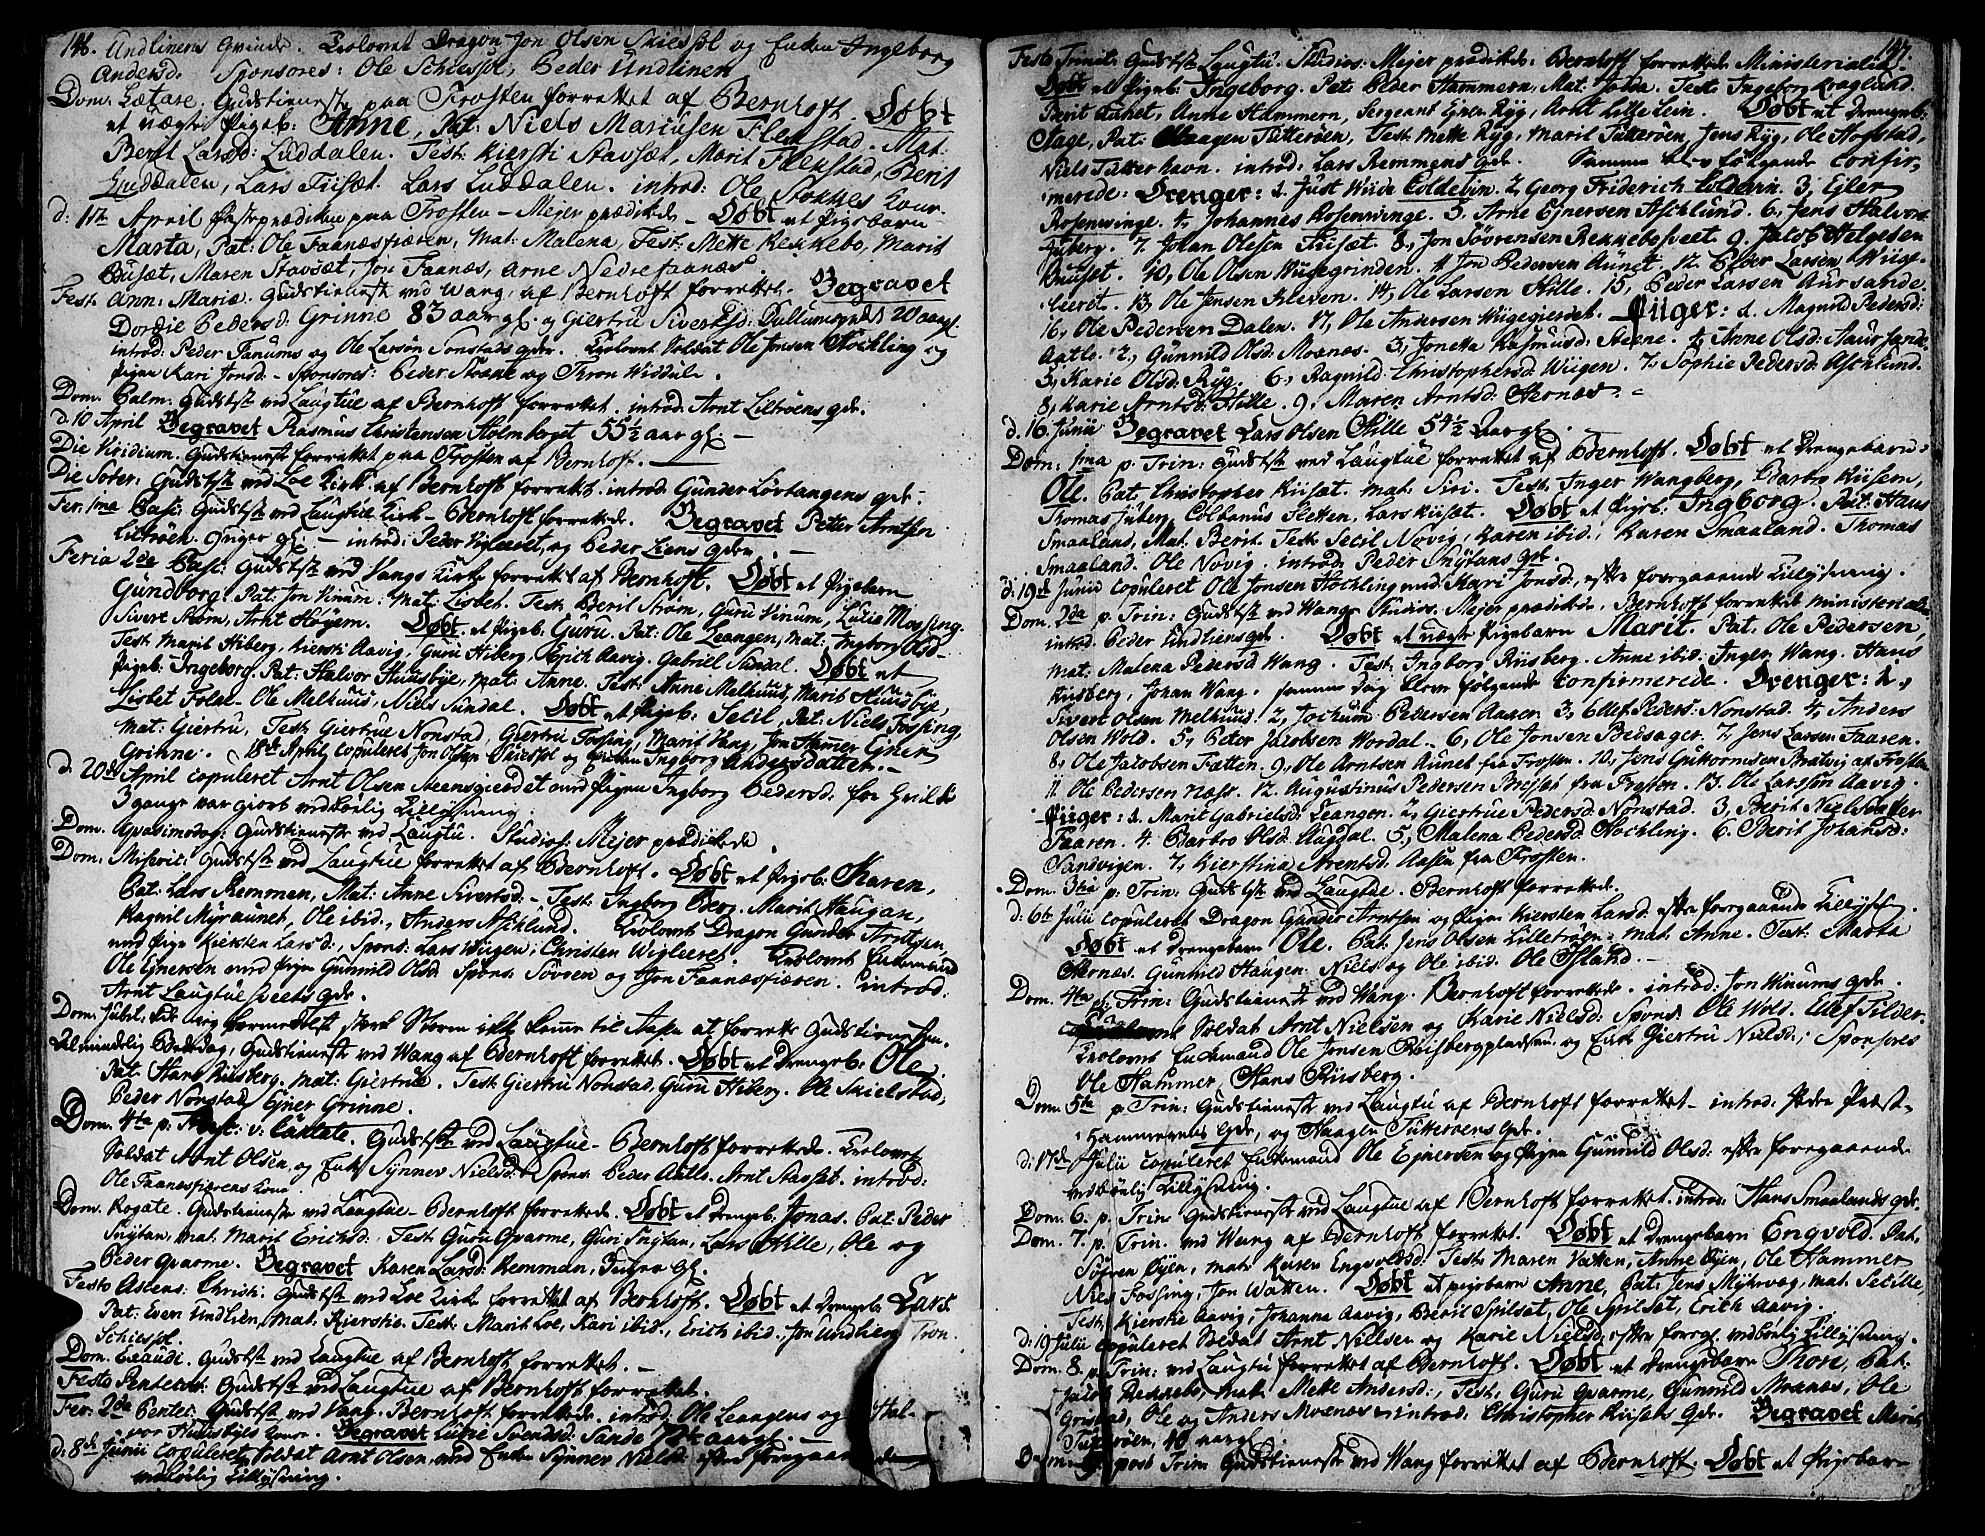 146. Undlinens Qvinde. Trolovet Dragon Jon Olsen Skiesfol og Enken Ingeborg
Andersd. Sponsores: Ole Schiesfol, Peder Undlinen
Dom. Lætare. Gudstieneste paa Frosten forrettet af Bernhoft. Døbt
et uægte Pigeb: Anne, Pat: Niels Mariusen Flekstad. Mat:
Berit Larsd: Luddalen. Test: Kiersti Stavsæt, Marit Flekstad, Berit
Luddalen, Lars Tiisæt. Lars Luddalen. introd: Ole Stokkes Kone.
d: 1ste April fasteprædiken paa Frosten - Mejer prædikede - Døbt et Pigebarn
Marta, Pat: Ole Faanæsfiæren, Mat: Malena, Test: Mette Rekkebo, Marit
Buusæt, Maren Stavsæt, Jon Faanæs, Arne Nedrefaanæs
Fest. Ann: Mariæ. Gudstieneste ved Wang, af Bernhoft forrettet. Begravet
Dordie Pedersd: Grinne 83 aar gl. og Giertru Sivertsd: 20 aar gl.
introd: Peder Fanums og Ole Larsøn Nonstads qvr. Trolovet Soldat Ole Jonsen Stochling og
Pigen Kari Jonsd. - Sponsores: Peder og Tron Widdal.
Dom. Palm. Gudstst ved Laugtue af Bernhoft forrettet. introd: Arnt Liltrøens qvr.
d. 10 April Begravet Rasmus Christensen Holmberget 55½ aar gl. -
Die Viridium. Gudstieneste forrettet paa Frosten af Bernhoft.
Die Jovis: Gudstst ved Loe Kirk af Bernhoft forrettet. introd. Gunder Løvtangens qvr.
Fer. 1ma Pasc: Gudstst ved Laugtue Kirk - Bernhoft forrettede. Begravet Petter Arntsen
Liltrøen. - introd: Peder Vigleeret, og Peder Liens qvinder.
Feria 2da Pasc: Gudstst ved Vangs Kirke forrettet af Bernhoft. Døbt et Pigebarn
Gundborg. Pat: Jon Vinum: Mat: Lisbet. Test: Berit Strøm, Guru Vinum, Lucia Mossing.
Sivert Strøm, Arnt Høyem. Døbt et Pigeb. Guru. Pat: Ole Leangen, Mat: Ingborg Olsd.
Test: Marit Hiberg, Kiersti Aavig, Guru Hiberg, Erich Aavig. Gabriel Sundal. Døbt et
Pigeb: Ingeborg. Pat: Halvor Huusbye, mat: Anne. Test: Anne Melhuus, Marit Huusbye,
Lisbet Folal - Ole Melhuus, Niels Sundal. Døbt et Pigeb: Setil, Pat: Niels Fossing,
Mat: Giertru, Test: Giertrue Nonstad, Giertru Fossing, Marit Vang, Jon Hammer
Grinne. 18de April copuleret Jon Olsen Skiesfol og Enken Ingborg Andersdatter. -
d. 20de April copuleret Arnt Olsen Steensgierdet med Pigen Ingborg Pedersd: for hvilke
3 gange var giort vedbørlig Tillysning.
Dom. Qvasimodog: Gudstieneste ved Laugtu. Studios: Mejer prædikede.
Dom. Miseric: Gudstst ved Laugtue forrettet af Bernhoft. Døbt et Pigeb. Karen,
Pat: Lars Remmen, Mat: Anne Sivertsd: - Test: Ingborg Berg. Marit Haugan,
Ragnil Myraunet, Ole ibid, Anders Aschlund. Trolovet Dragon Gunder Arntsen
med Pige Kiersten Larsd., Spons: Lars Wiigen, Christen Wigleeret. Trolovet Enkemand
Ole Ejnersen med Pigen Gunnild Olsd. Spons: Søvren og Jon Faanæsfiæren. introd:
Arnt Laugtuesveets qvr.
Dom. Jubil: kunde ieg formedelst sterk Storm ikke komme til Aasen at forrette Gudstienesten.
Almindelig Bededag, Gudstieneste ved Wang af Bernhoft forrettet. Døbt et Drengeb. Ole.
Pat: Hans Riisberg. Mat: Giertrue. Test: Giertru Nonstad, Guru Hiberg. Ole Skielstad,
Peder Nonstad, Ejner Grinne.
Dom. 4ta p. Pasc: v: Cantate. Gudstst ved Laugtue - Bernhoft forrettede. Trolovet
Soldat Arnt Olsen, og Enke Synnev Nielsd: Spons: Peder Aatlo. Arnt Stavset. introd:
Ole Faanesfiærens Kone
Dom. Rogate. Gudstieneste ved Laugtue - Bernhoft forrettede. Døbt et Drengeb. Jonas. Pat: Peder
Snytan, mat: Marit Erichsd: Test: Guru Qvarme, Guri Snytan, Lars Hille, Ole og
Peder Qvarme. Begravet Karen Larsd: Remman, gl.
Festo Ascens: Christi. Gudstst ved Loe Kirke forrettet af Bernhoft. Døbt et Drengeb. Lars.
Pat: Even Undlien, mat. Kierstie. Test: Marit Loe, Kari ibid., Erich ibid. Jon Undlien, Tron
Schiesfol.
Dom. Exaudi. Gudstst ved Laugtue af Bernhoft forrettet. -
Festo Pentecost: Gudstst ved Laugtue af Bernhoft forrettet.
Fer. 2da Pentec: Gudstst ved Vang. Bernhoft forrettede. introd: Ole Leangens og Hal-
vor Huusbyes Koner. Begravet Lucie Svendsd: Sando aar gl. -
d: 8de Junii Copuleret Soldat Arnt Olsen med Enke Synnev Nielsd: efter foregaaende
vedbørlig Tillysning.
147.
Festo Trinit: Gudstst Laugtu. Studios: Mejer prædikede. Bernhoft forrettede Ministerialia
Døbt et Pigeb: Ingeborg. Pat: Peder Hammern, Mat: Jødda. Test: Ingeborg Kraglund.
Berit Aunet, Anne Hammern, Sergeant Ejner Ryg, Arnt Lille Lein. Døbt et Drengeb:
Stage, Pat: Haagen Tutterøen, Test: Mette Ryg, Marit Tutterøen, Jens Ryg, Ole Hofstad,
Niels Tutterhavn. introd: Lars Remmens qvr. Samme blev følgende Confir-
merede: Drenger: 1. Just Wiide Coldevin. 2, Georg Friderich Coldevin. 3, Ejler
Rosenvinge. 4, Johannes Rosenvinge. 5. Arne Ejnersen Aschlund. 6, Jens Halvors.
Juberg. 7. Johan Olesen Tiisæt. 8, Jon Sövrensen Rekkebosveet. 9. Jacob Helgesen
Buuset. 10, Ole Olsen Wiigegrinden. 11 Jon Pedersen Aunet. 12. Peder Larsen Wiig-
leeret. 13, Ole Jensen Kleven. 14, Ole Larsen Hille. 15, Peder Larsen Aursande.
16, Ole Pedersen Dalen. 17, Ole Andersen Wiigegierdet. Piiger: 1. Magnild Pedersd:
Aatlo. 2, Gunnild Olsd: Moenæs. 3, Jonetta Rasmusd: Steene. 4, Anne Olsd: Aursande.
5, Karie Olsd: Ryg. 6, Ragnild Christophersd: Wiigen. 7, Sophie Pedersd: Aschlund.
8, Karie Arntsd: Hille. 9, Maren Arntsd: Hernæs. -
d. 16. Junii Begravet Lars Olsen Hille 54½ Aar gl.
Dom: 1ma p. Trin: Gudstst ved Laugtue forrettet af Bernhoft. Døbt et Drengebarn:
Ole. Pat: Christopher Kiisæt. mat: Siri. Test: Inger Wangberg, Barbro Kiisem,
Thomas Juberg, Colbanus Sletten, Lars Kiisæt. Døbt et Pigeb: Ingborg. Pat: Hans
Smaaland, Mat: Berit. Test: Secil Nøvig, Karen ibid., Karen Smaaland. Thomas
Smaaland. Ole Nøvig. introd: Peder Snytans qvr.
d. 19de Junii copuleret Ole Jonsen Stochling med Kari Jonsd., efter foregaaende Tillysning.
Dom. 2da p. Trin: Gudstst ved Wang Studios. Mejer prædikede, Bernhoft forrettet ministerialia
introd. Peder Undliens qvr. Døbt et uægte Pigebarn Marit. Pat: Ole Pedersen,
mat: Malena Pedersd Wang. Test: Ingborg Riisberg. Anne ibid: Inger Wang. Hans
Riisberg, Johan Wang. samme Dag bleve følgende Confirmerede. Drenger: 1,
Sivert Olsen Melhuus. 2, Jochum Pedersen Aaren. 3, Ellef Peders: Nonstad. 4, Anders
Olsen Wold. 5, Peter Jacobsen Wordal. 6, Ole Jonsen Beisager. 7, Jens Larsen Faaren.
8, Ole Jacobsen Fætten. 9, Ole Arntsen Aunet fra Frosten. 10, Jens Guttormsen Bratvig af Frosten
11 Ole Pedersen Næss. 12. Augustinus Pedersen Breiset fra Frosten. 13. Ole Larssøn Aavig.
Piiger: 1. Marit Gabrielsd: Leangen. 2, Giertrue Pedersd: Nonstad. 3, Berit Nielsdatter
Faaren. 4. Barbro Olsd: Augdal. 5, Malena Pedersd: Stochling. 6. Berit Johansd:
Sandvigen. 7, Kierstina Arentsd: Aasen fra Frosten.
Dom. 3tia p. Trin: Gudstst ved Laugtue. Bernhoft forrettede.
d: 6te Julii copuleret Dragon Gunder Arntsen og Pigen Kiersten Larsd: efter foregaaende Tillysn.
Døbt et Drengebarn Ole. Pat: Jens Olsen Lilletrøen - mat: Anne. Test: Marta
Hernæs. Gunnild Haugen. Niels og Ole ibid. Ole Island. -
Dom. 4ta p. Trin: Gudstieneste ved Wang. Bernhoft forrettede. introd: Jon Vinums qvr.
Soldat Arnt Nielsen og Karie Nielsd: Spons: Ole Wold. Ellef Tilder.
Trolovet Enkemand Ole Jonsen Reisbergpladsen og Enke Giertru Nielsd; Sponsores
Ole Hammer, Hans Riisberg.
Dom. 5te p. Trin: Gudstieneste ved Laugtue af Bernhoft forrettet - introd: Peder Præst-
Hammerens qvr, og Haagen Tutterøens qvr.
d: 17de Julii Copuleret Enkemand Ole Ejnersen og Pigen Gunnild Olsd: efter foregaaende
vedbørlig Tillysning.
Dom. 6. p. Trin: Gudstieneste ved Laugtue af Bernhoft forrettet. introd: Hans Smaalands qvr.
Dom. 7. p. Trin. ved Wang af Bernhoft forrettet. Døbt et Drengebarn Engvold. Pat.
Søfren Øyen, mat: Karen Engvoldsd: Test: Maren Vatten, Anne Øyen, Ole Hammer
Niels Fossing, Jon Watten. Døbt et pigebarn Anne, Pat: Jens Myhrvæg, mat. Setille,
Test: Kierstie Aavig, Johanna Aavig, Berit Spilset, Ole Spilset, Erich Aavig.
d: 19 Julii copuleret Soldat Arnt Nielsen og Karie Nielsd, efter foregl. vedbørlig Tillysning.
Dom. 8. p. Trin: ved Laugtu forrettet af Bernhoft. Døbt et Drengebarn Thore, Pat:
Jacob Rekkebo, mat: Mette Andersd:, Test: Guru Qvarme, Gunnild Moenæs, Ole
Grøstad, Ole og Anders Moenæs - introd: Christopher Kiisets qvr. Begravet Marit
Tutterøen, 40 aar gl.
Dom: 9 post Trin: Gudstieneste ved Wang forrettet af Bernhoft. Døbt et Pigebarn